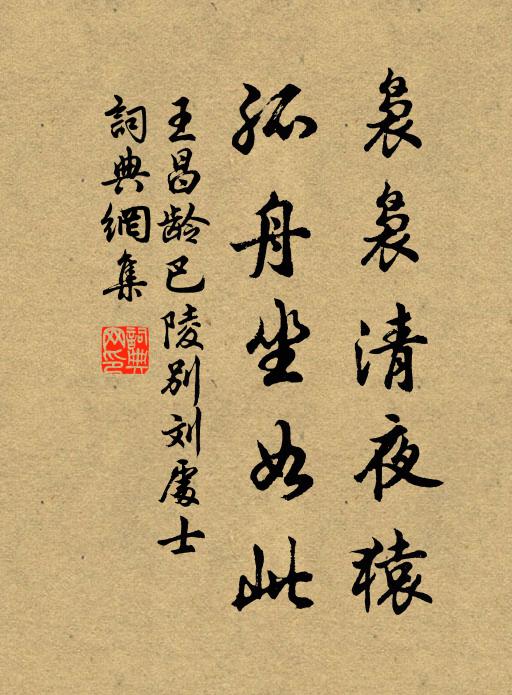 裊裊清夜猿
孤舟坐如此
王昌龄巴陵别刘處士
詞典網集
詞典网印